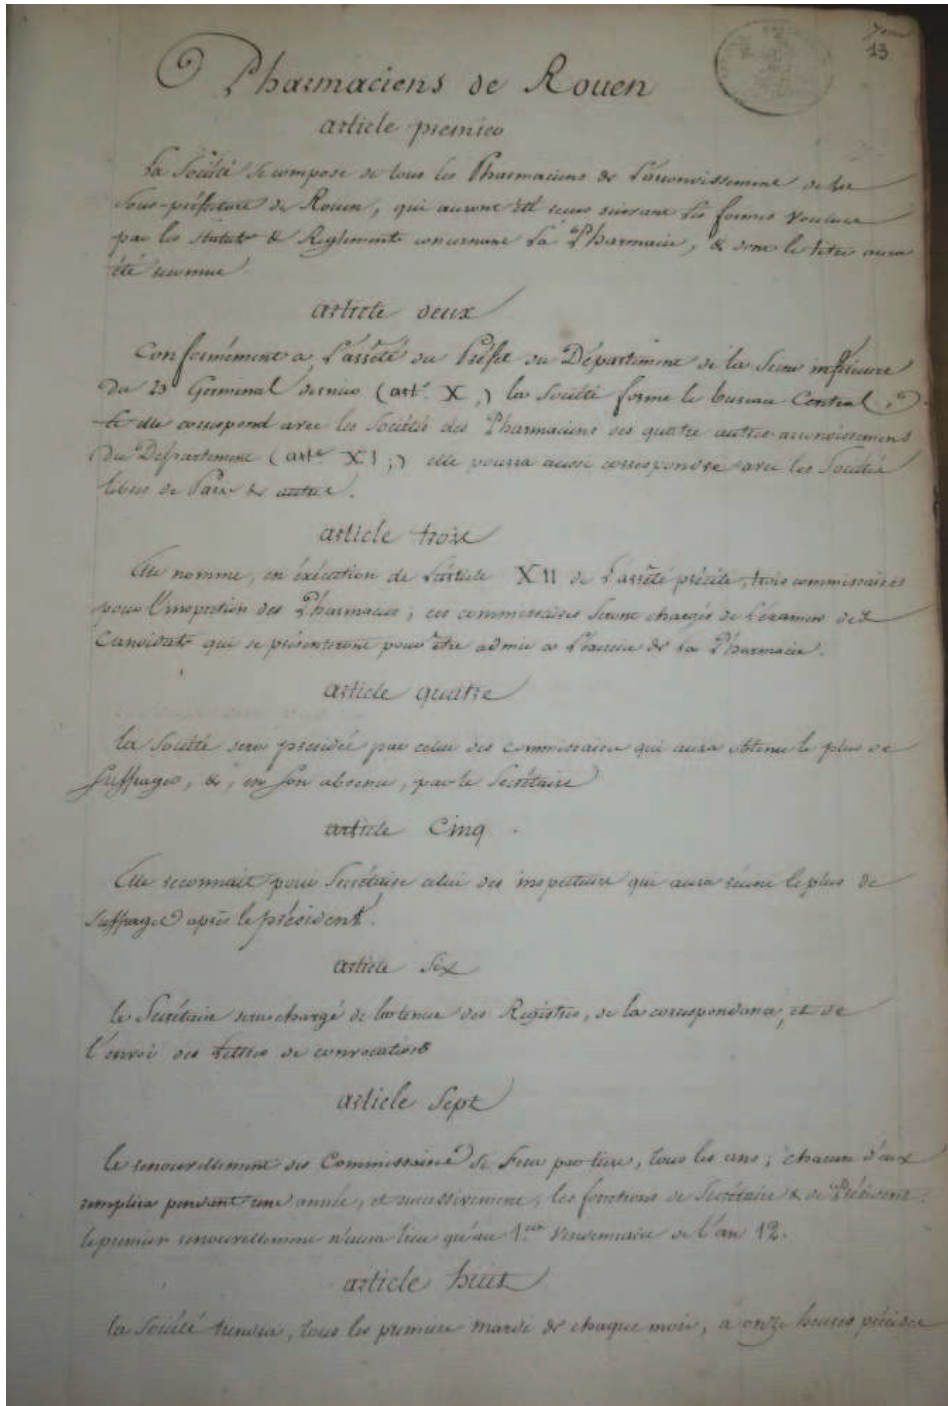 13
Pharmaciens de Rouen
article premier
La Société se compose de tous les Pharmaciens de L'arrondissement de la
Sous-préfecture de Rouen, qui auront été reçus suivant les formes voulues
par les statuts & Reglements concernant La Pharmacie, & dont le titre aura
été reconnu.
article deux
Conformément a L'arrêté du Préfet du Département de la Seine inférieure
du 29 Germinal dernier (art. X,) la Société forme le bureau Central,
elle correspond avec les Sociétés des Pharmaciens des quatre autres arrondissements
du Département (art. XI;) elle pourra aussi correspondre avec les Sociétés
libres de Paris & autres.
article trois
Elle nomme, en éxécution de L'article XII de L'arrêté précité, trois commissaires
pour l'inspection des Pharmacies; ces commissaires seront chargés de l'éxamen des
Candidats qui se présenteront pour être admis a L'éxercice de La Pharmacie.
article quatre
la Société sera présidée par celui des commissaires qui aura obtenu le plus de
suffrages, &, en son absence, par le Secrétaire
article Cinq
Elle reconnait pour Secrétaire celui des inspecteurs qui aura réuni le plus de
suffrages après le président.
article Six
le Secrétaire sera chargé de la tenue des Régistres, de la correspondance, et de
l'envoi des lettres de convocations
article Sept
le renouvellement des Commissaires se fera par tiers, tous les ans; chacun d'eux
remplira pendant une année, et successivement, les fonctions de Secrétaire & de Président.
le premier renouvellement n'aura lieu qu'au 1.er Vendemiaire de l'an 12.
article huit
la Société tiendra, tous les premiers mardi de chaque mois, a onze heures précises